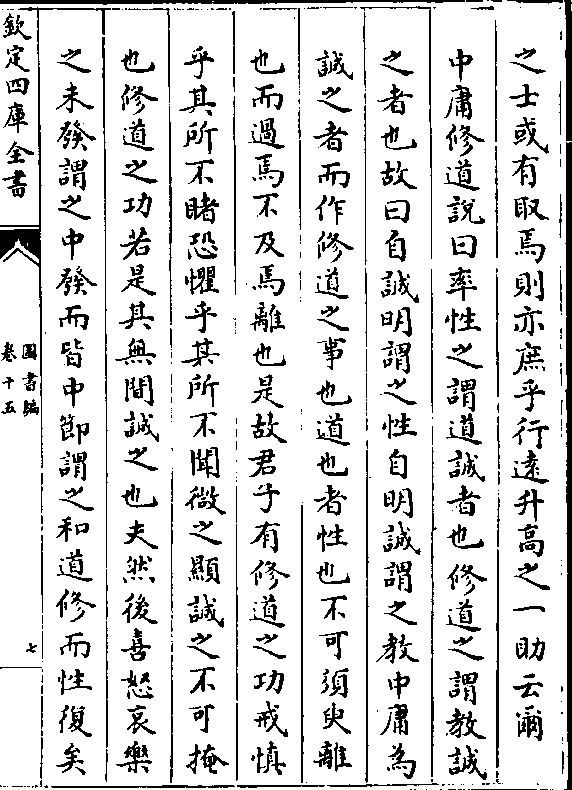 之士或有取焉則亦庶乎行遠升高之一助云爾
中庸修道說曰率性之謂道誠者也修道之謂教誠
之者也故曰自誠明謂之性自明誠謂之教中庸為
誠之者而作修道之事也道也者性也不可須臾離
也而過焉不及焉離也是故君子有修道之功戒慎
乎其所不睹恐懼乎其所不聞微之顯誠之不可掩
也修道之功若是其無間誠之也夫然後喜怒哀樂
之未發謂之中發而皆中節謂之和道修而性復矣
欽定四庫全書
圖書編
卷十五
七